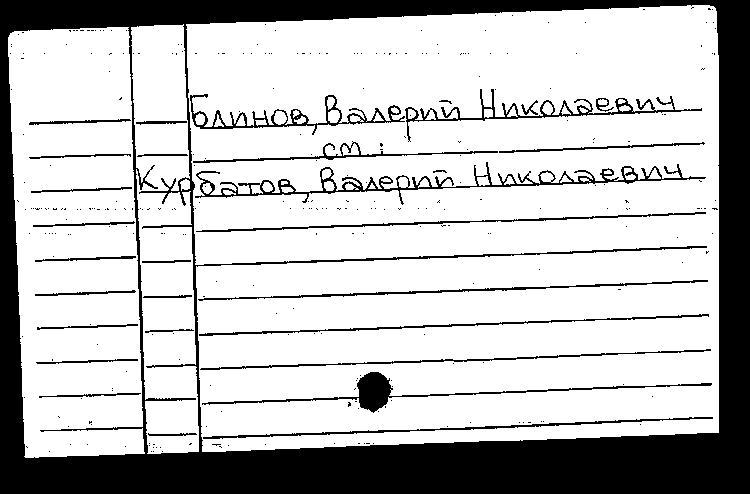 Блинов, Валерий Николаевич
см.:
Курбатов, Валерий Николаевич